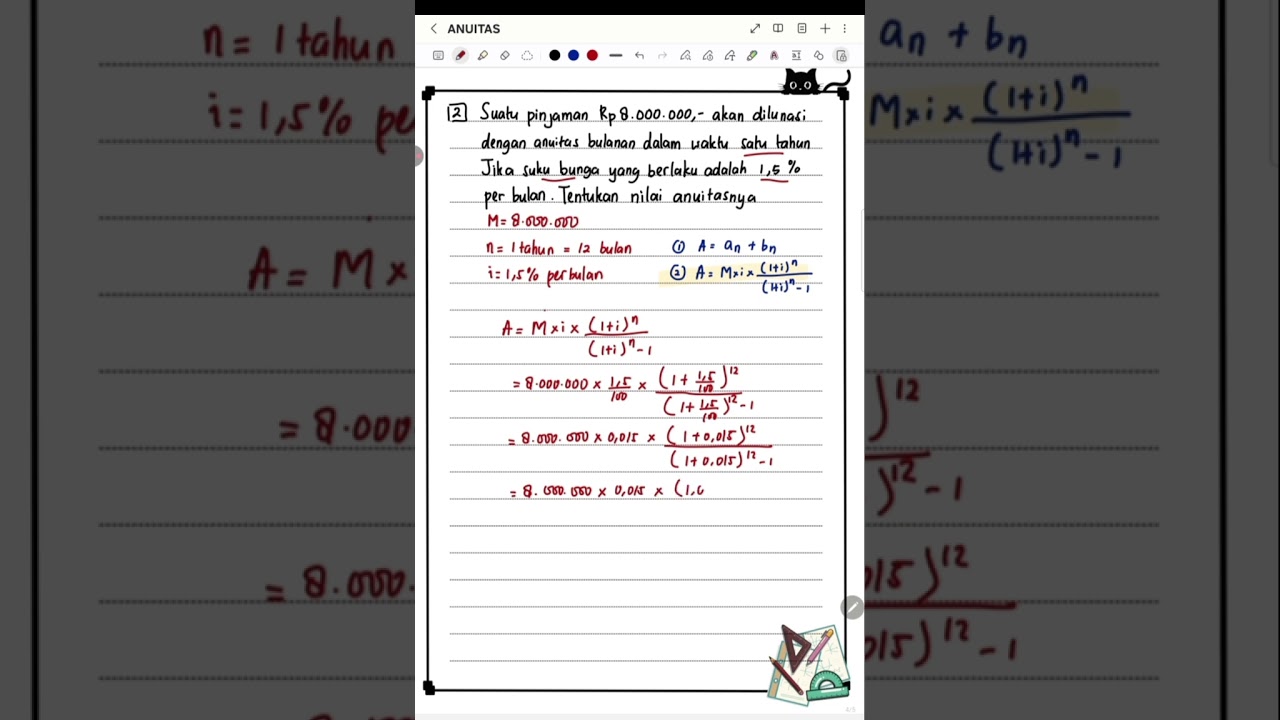 ANUITAS
2 Suatu pinjaman Rp 8.000.000,- akan dilunasi
dengan anuitas bulanan dalam waktu satu tahun
Jika suku bunga yang berlaku adalah 1,5 %
per bulan. Tentukan nilai anuitasnya
M = 8.000.000
n = 1 tahun = 12 bulan
i = 1,5% per bulan
① A = an + bn
② A = M x i x (1+i)^n / (1+i)^n - 1
A = M x i x (1+i)^n / (1+i)^n - 1
= 8.000.000 x 1,5/100 x (1 + 1,5/100)^12 / (1 + 1,5/100)^12 - 1
= 8.000.000 x 0,015 x (1 + 0,015)^12 / (1 + 0,015)^12 - 1
= 8.000.000 x 0,015 x (1,0
n = 1 tahun
i = 1,5% pe
A = M x
= 8.000
= 8.000.
an + bn
M x i x (1+i)^n / (1+i)^n - 1
)^12
)^12 - 1
015)^12
015)^12 - 1